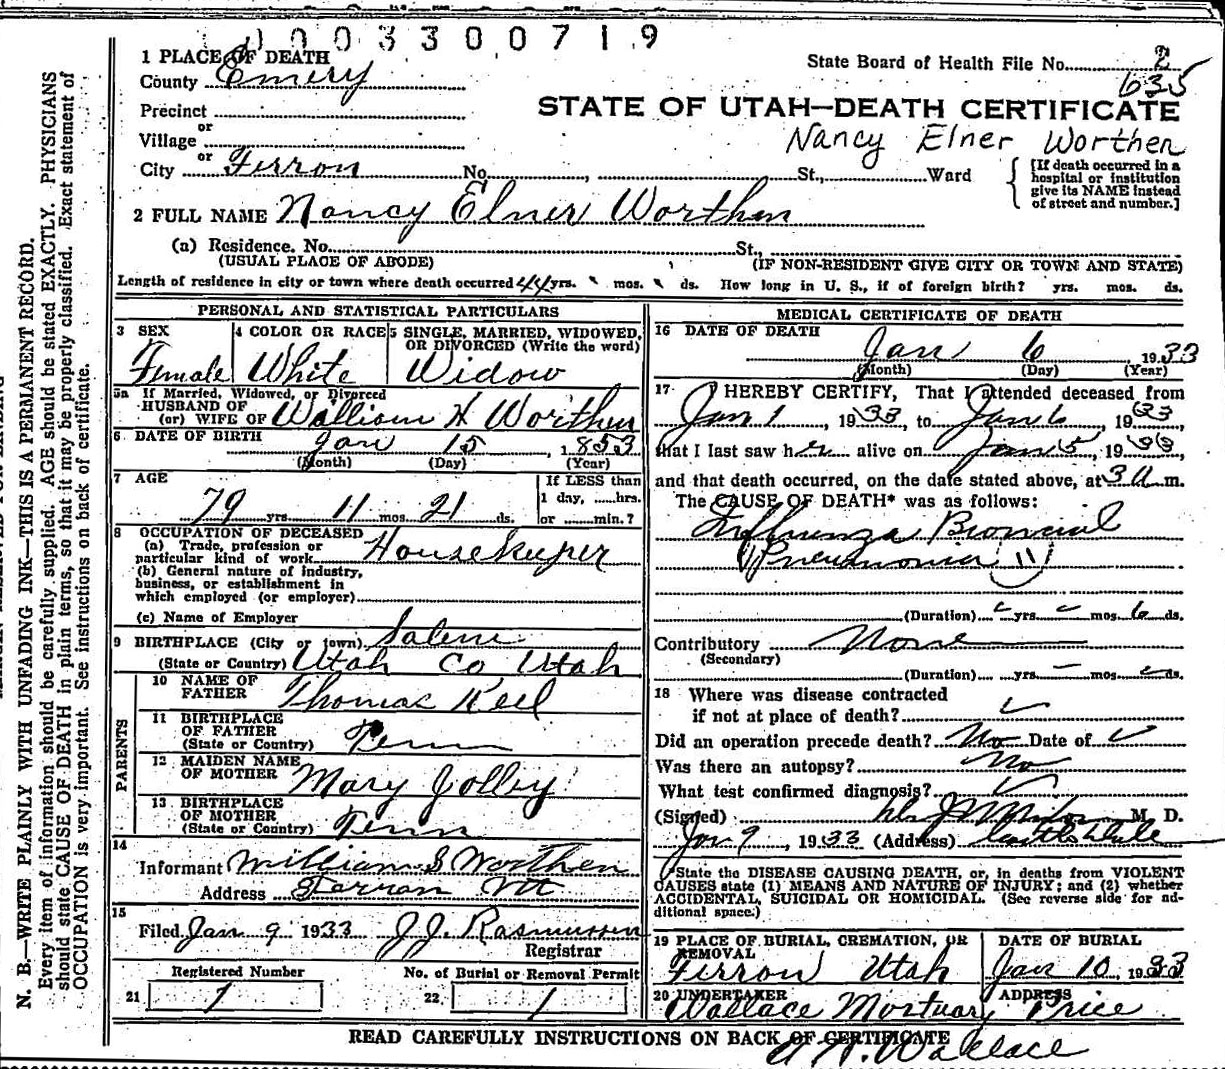 0003300719
1 PLACE OF DEATH
State Board of Health File No. 2
County Emery
635
Precinct
STATE OF UTAH—DEATH CERTIFICATE
or
Village
Nancy Elner Worthen
or
City Ferron No. , St., Ward
[If death occurred in a
hospital or institution
give its NAME instead
of street and number.]
2 FULL NAME Nancy Elner Worthen
(a) Residence. No. St.,
(USUAL PLACE OF ABODE) (IF NON-RESIDENT GIVE CITY OR TOWN AND STATE)
Length of residence in city or town where death occurred 44 yrs. mos. ds. How long in U. S., if of foreign birth? yrs. mos. ds.
PERSONAL AND STATISTICAL PARTICULARS
3 SEX
Female
4 COLOR OR RACE
White
5 SINGLE, MARRIED, WIDOWED,
OR DIVORCED (Write the word)
Widow
5a If Married, Widowed, or Divorced
HUSBAND OF
(or) WIFE OF William H Worthen
6 DATE OF BIRTH Jan 15, 1853
(Month) (Day) (Year)
7 AGE
79 yrs. 11 mos. 21 ds.
If LESS than
1 day, hrs.
or min.?
8 OCCUPATION OF DECEASED
(a) Trade, profession or
particular kind of work Housekeeper
(b) General nature of industry,
business, or establishment in
which employed (or employer)
(c) Name of Employer
9 BIRTHPLACE (City or town) Salem
(State or Country) Utah Co Utah
PARENTS
10 NAME OF
FATHER Thomas Keel
11 BIRTHPLACE
OF FATHER
(State or Country) Tenn
12 MAIDEN NAME
OF MOTHER Mary Jolley
13 BIRTHPLACE
OF MOTHER
(State or Country) Tenn
14
Informant William S Worthen
Address Ferron Ut
15
Filed Jan 9 1933 J.J. Rasmussen
Registrar
Registered Number
21 1
No. of Burial or Removal Permit
22 1
MEDICAL CERTIFICATE OF DEATH
16 DATE OF DEATH
Jan 6, 1933
(Month) (Day) (Year)
17 I HEREBY CERTIFY, That I attended deceased from
Jan 1, 1933, to Jan 6, 1933
that I last saw her alive on Jan 5, 1933,
and that death occurred, on the date stated above, at 3 A m.
The CAUSE OF DEATH* was as follows:
Influenza Broncial
Pneumonia 11
(Duration) yrs. mos. 6 ds.
Contributory None
(Secondary)
(Duration) yrs. mos. ds.
18 Where was disease contracted
if not at place of death?
Did an operation precede death? No Date of
Was there an autopsy? No
What test confirmed diagnosis?
(Signed) M. D.
Jan 9, 1933 (Address) Castle Dale
*State the DISEASE CAUSING DEATH, or, in deaths from VIOLENT
CAUSES state (1) MEANS AND NATURE OF INJURY; and (2) whether
ACCIDENTAL, SUICIDAL OR HOMICIDAL. (See reverse side for ad-
ditional space.)
19 PLACE OF BURIAL, CREMATION, OR
REMOVAL
Ferron Utah
DATE OF BURIAL
Jan 10, 1933
20 UNDERTAKER
Wallace Mortuary
ADDRESS
Price
READ CAREFULLY INSTRUCTIONS ON BACK OF CERTIFICATE
Wallace
N. B.—WRITE PLAINLY WITH UNFADING INK—THIS IS A PERMANENT RECORD.
Every item of information should be carefully supplied. AGE should be stated EXACTLY. PHYSICIANS
should state CAUSE OF DEATH in plain terms, so that it may be properly classified. Exact statement of
OCCUPATION is very important. See instructions on back of certificate.